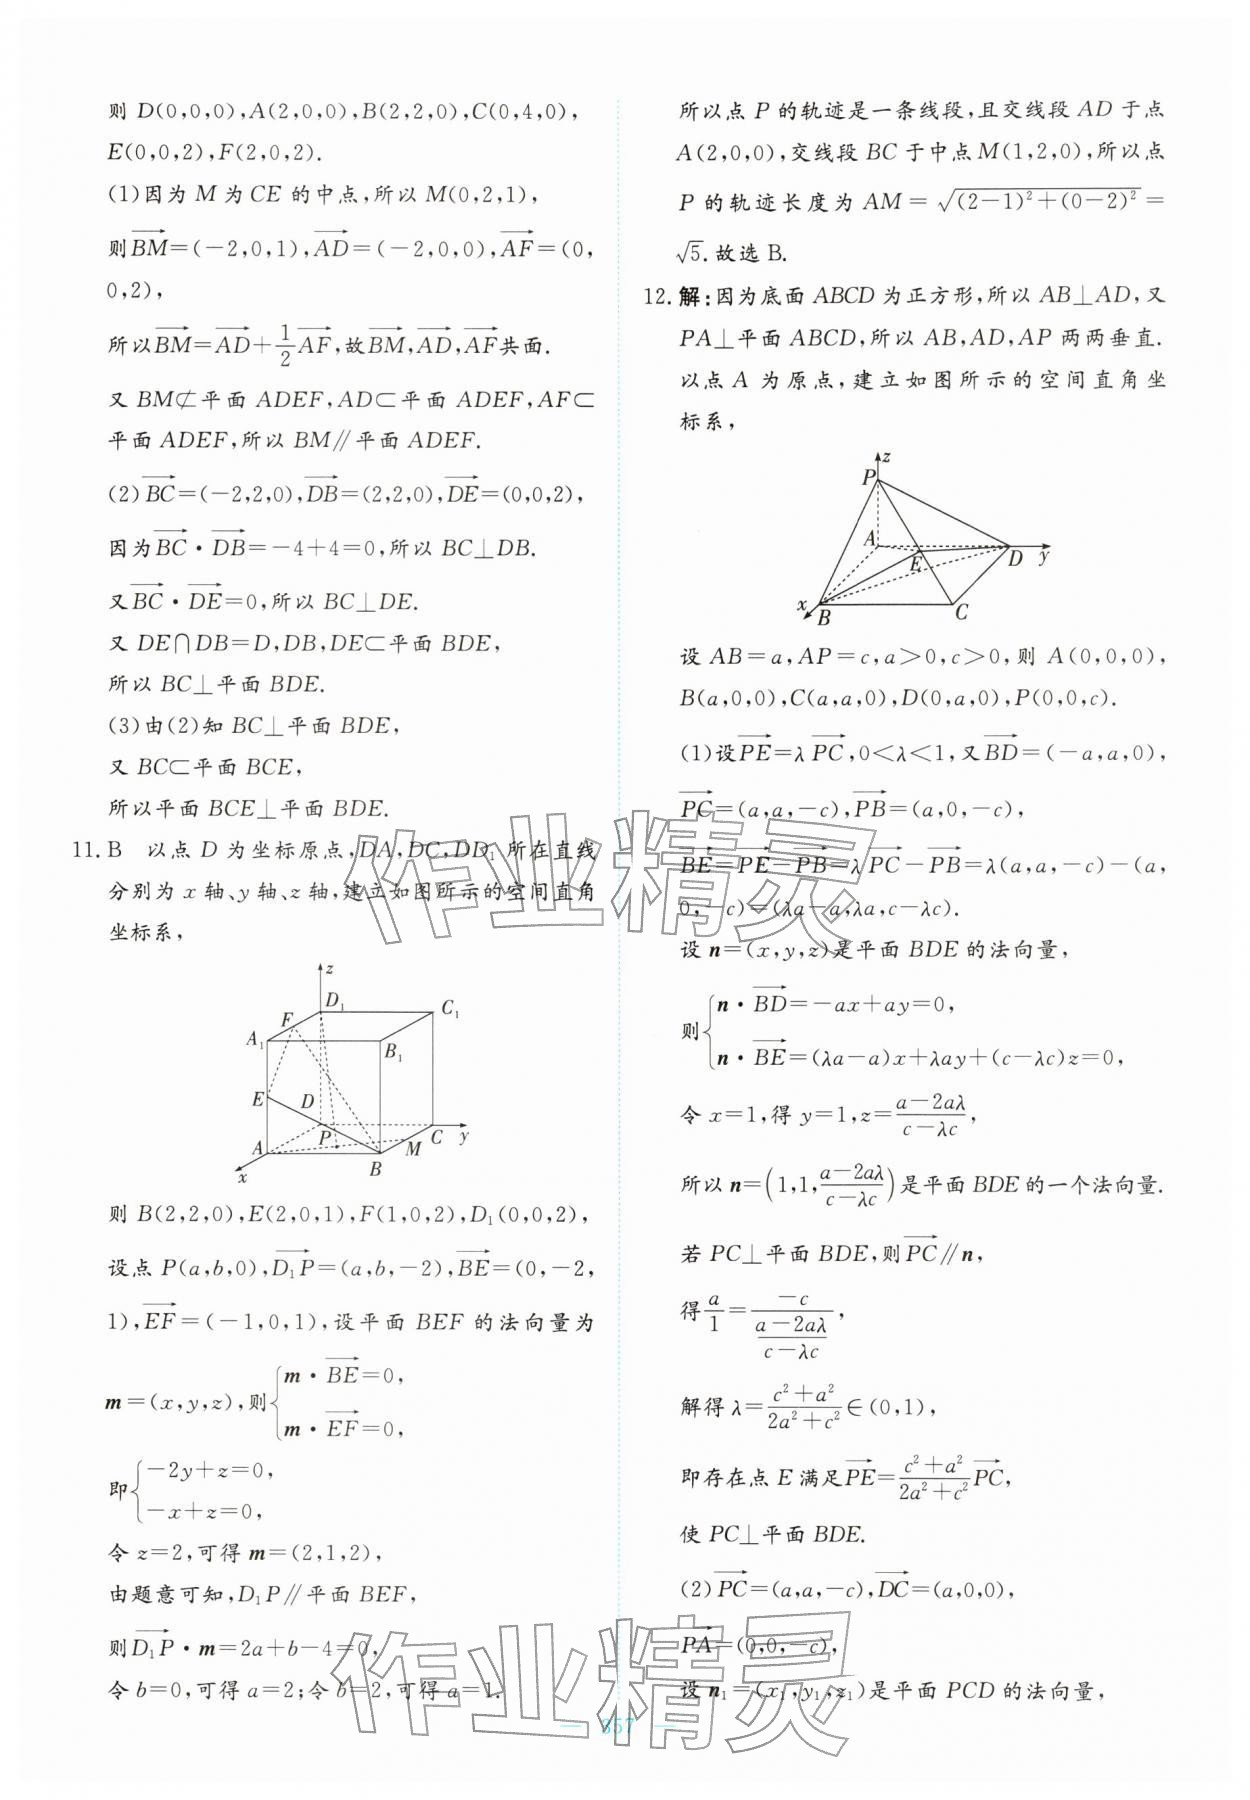 则 D(0,0,0),A(2,0,0),B(2,2,0),C(0,4,0),
E(0,0,2),F(2,0,2).
(1)因为 M 为 CE 的中点,所以 M(0,2,1),
则$\overrightarrow{BM}$=(-2,0,1),$\overrightarrow{AD}$=(-2,0,0),$\overrightarrow{AF}$=(0,
0,2),
所以$\overrightarrow{BM}$=$\overrightarrow{AD}$+$\frac{1}{2}\overrightarrow{AF}$,故$\overrightarrow{BM}$,$\overrightarrow{AD}$,$\overrightarrow{AF}$共面.
又 BM⊄平面 ADEF,AD⊂平面 ADEF,AF⊂
平面 ADEF,所以 BM∥平面 ADEF.
(2)$\overrightarrow{BC}$=(-2,2,0),$\overrightarrow{DB}$=(2,2,0),$\overrightarrow{DE}$=(0,0,2),
因为$\overrightarrow{BC}$·$\overrightarrow{DB}$=-4+4=0,所以 BC⊥DB.
又$\overrightarrow{BC}$·$\overrightarrow{DE}$=0,所以 BC⊥DE.
又 DE∩DB=D,DB,DE⊂平面 BDE,
所以 BC⊥平面 BDE.
(3)由(2)知 BC⊥平面 BDE,
又 BC⊂平面 BCE,
所以平面 BCE⊥平面 BDE.
11.B 以点 D 为坐标原点,DA,DC,DD₁所在直线
分别为 x 轴、y 轴、z 轴,建立如图所示的空间直角
坐标系,
z
D₁
C₁
F
A₁
B₁
E
D
P
C
y
A
M
B
x
则 B(2,2,0),E(2,0,1),F(1,0,2),D₁(0,0,2),
设点 P(a,b,0),$\overrightarrow{D_1P}$=(a,b,-2),$\overrightarrow{BE}$=(0,-2,
1),$\overrightarrow{EF}$=(-1,0,1),设平面 BEF 的法向量为
m=(x,y,z),则{m·$\overrightarrow{BE}$=0,
m·$\overrightarrow{EF}$=0,
即{-2y+z=0,
-x+z=0,
令 z=2,可得 m=(2,1,2),
由题意可知,D₁P∥平面 BEF,
则$\overrightarrow{D_1P}$·m=2a+b-4=0,
令 b=0,可得 a=2;令 b=2,可得 a=1.
所以点 P 的轨迹是一条线段,且交线段 AD 于点
A(2,0,0),交线段 BC 于中点 M(1,2,0),所以点
P 的轨迹长度为 AM=$\sqrt{(2-1)^2+(0-2)^2}$=
$\sqrt{5}$.故选 B.
12.解:因为底面 ABCD 为正方形,所以 AB⊥AD,又
PA⊥平面 ABCD,所以 AB,AD,AP 两两垂直.
以点 A 为原点,建立如图所示的空间直角坐
标系,
z
P
A
E
D
y
x
B
C
设 AB=a,AP=c,a>0,c>0,则 A(0,0,0),
B(a,0,0),C(a,a,0),D(0,a,0),P(0,0,c).
(1)设$\overrightarrow{PE}$=λ$\overrightarrow{PC}$,0<λ<1,又$\overrightarrow{BD}$=(-a,a,0),
$\overrightarrow{PC}$=(a,a,-c),$\overrightarrow{PB}$=(a,0,-c),
$\overrightarrow{BE}$=$\overrightarrow{PE}$-$\overrightarrow{PB}$=λ$\overrightarrow{PC}$-$\overrightarrow{PB}$=λ(a,a,-c)-(a,
0,-c)=(λa-a,λa,c-λc).
设 n=(x,y,z)是平面 BDE 的法向量,
则{n·$\overrightarrow{BD}$=-ax+ay=0,
n·$\overrightarrow{BE}$=(λa-a)x+λay+(c-λc)z=0,
令 x=1,得 y=1,z=$\frac{a-2aλ}{c-λc}$,
所以 n=$\left(1,1,\frac{a-2aλ}{c-λc}\right)$是平面 BDE 的一个法向量.
若 PC⊥平面 BDE,则$\overrightarrow{PC}$∥n,
得$\frac{a}{1}$=$\frac{-c}{\frac{a-2aλ}{c-λc}}$,
解得 λ=$\frac{c^2+a^2}{2a^2+c^2}$∈(0,1),
即存在点 E 满足$\overrightarrow{PE}$=$\frac{c^2+a^2}{2a^2+c^2}\overrightarrow{PC}$,
使 PC⊥平面 BDE.
(2)$\overrightarrow{PC}$=(a,a,-c),$\overrightarrow{DC}$=(a,0,0),
$\overrightarrow{PA}$=(0,0,-c),
设 n₁=(x₁,y₁,z₁)是平面 PCD 的法向量,
— 357 —
作业精灵
作业精灵